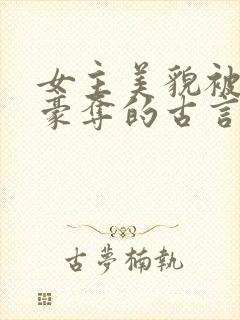 女主美貌被
豪夺的古言
古夢楠執